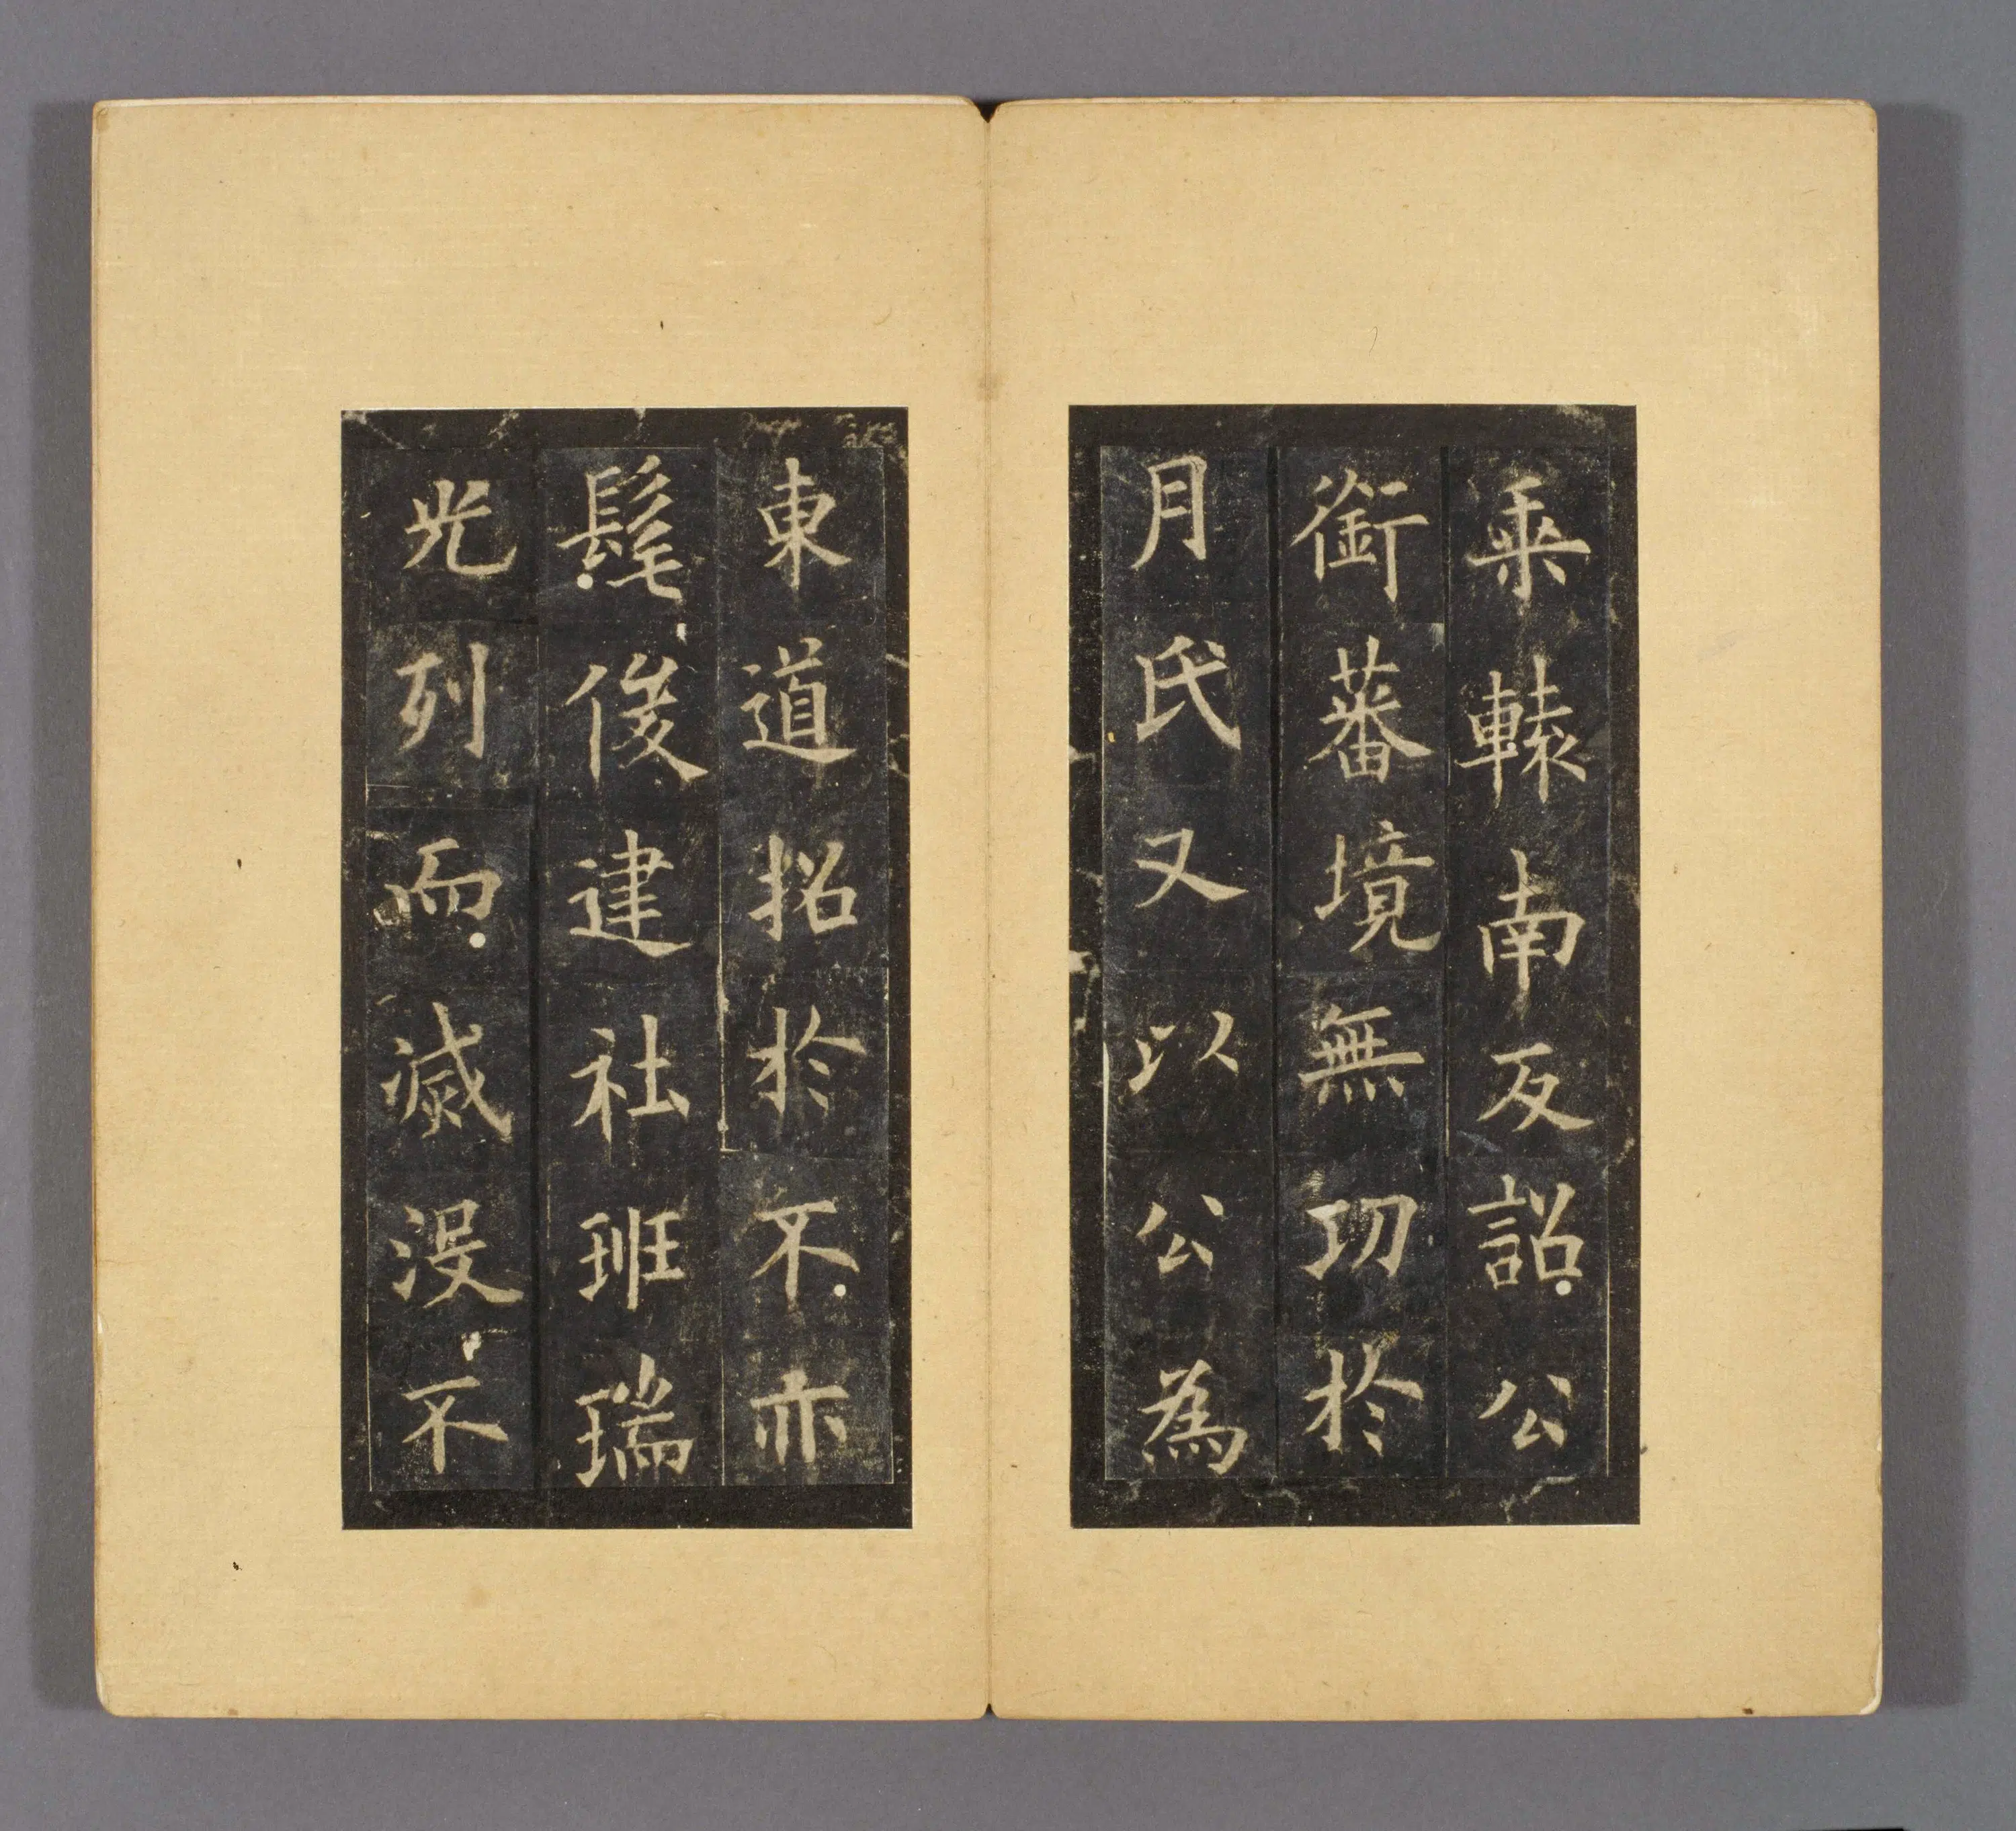 乘轅南反詔公
銜蕃境無功於
月氏又以公為
東道招於不亦
髦俊建社班瑞
光列而滅没不